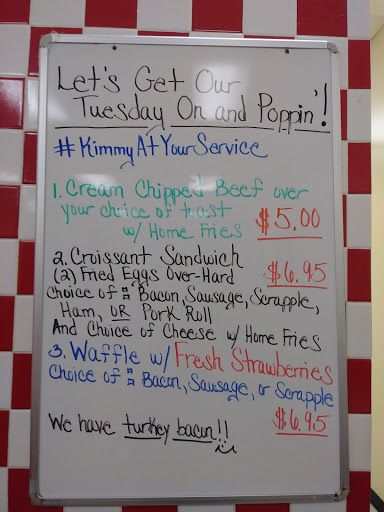 Let's Get Our
Tuesday On and Poppin'!
#KimmyAtYourService
1. Cream Chipped Beef over
your choice of toast
w/ Home Fries $5.00
2. Croissant Sandwich
(2) Fried Eggs Over-Hard $6.95
Choice of :: Bacon, Sausage, Scrapple,
Ham, OR Pork Roll
And Choice of Cheese w/ Home Fries
3. Waffle w/ Fresh Strawberries
Choice of :: Bacon, Sausage, or Scrapple
$6.95
We have turkey bacon!!